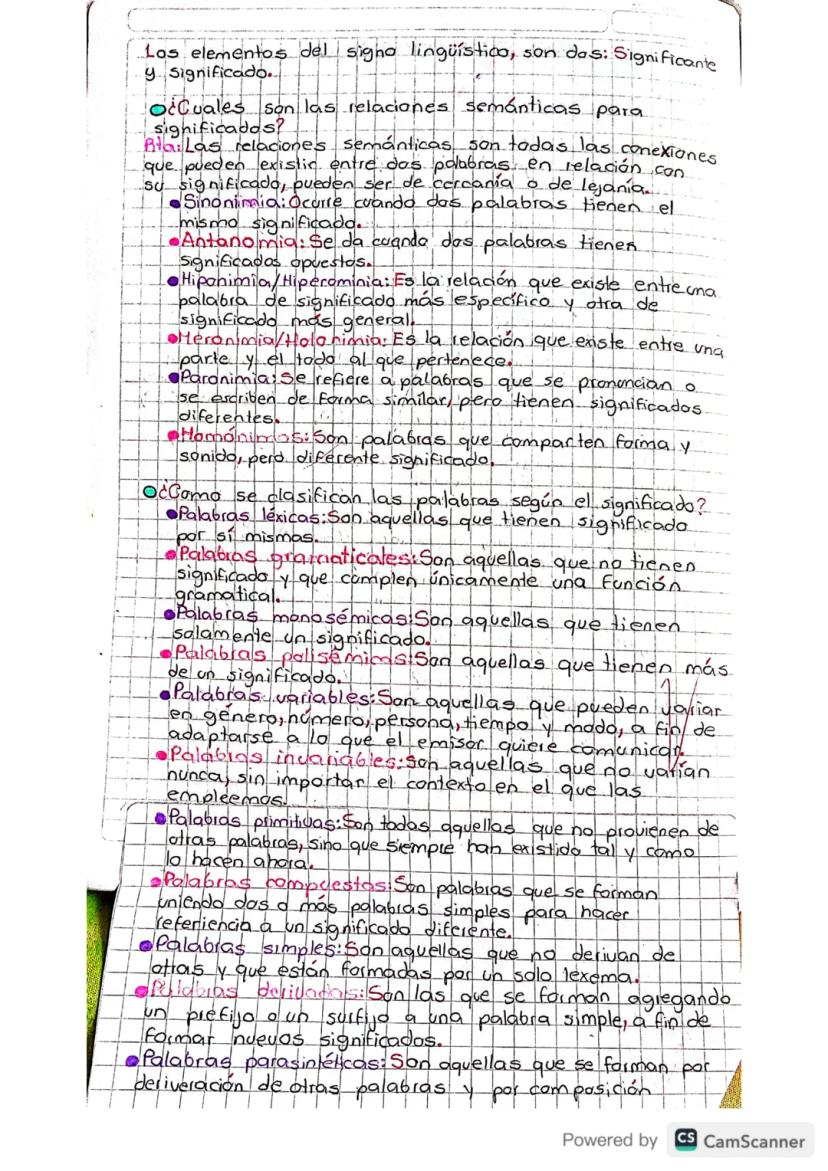 Los elementos del signo lingüístico, son dos: Significante
y significado.
¿Cuales son las relaciones semánticas para
significados?
Rta: Las relaciones semánticas son todas las conexiones
que pueden existir entre dos palabras en relación con
su significado, pueden ser de cercanía o de lejanía.
Sinonimia: Ocurre cuando dos palabras tienen el
mismo significado.
Antonomia: Se da cuando dos palabras tienen
significados opuestos.
Hiponimia/Hiperominia: Es la relación que existe entre una
palabra de significado más específico y otra de
significado más general.
Meronimia/Holonimia: Es la relación que existe entre una
parte y el todo al que pertenece.
Paronimia: Se refiere a palabras que se pronuncian o
se escriben de forma similar, pero tienen significados
diferentes.
Homónimos: Son palabras que comparten forma y
sonido, pero diferente significado.
¿Como se clasifican las palabras según el significado?
Palabras léxicas: Son aquellas que tienen significado
por sí mismas.
Palabras gramaticales: Son aquellas que no tienen
significado y que cumplen únicamente una función
gramatical.
Palabras monosémicas: Son aquellas que tienen
solamente un significado.
Palabras polisémicas: Son aquellas que tienen más
de un significado.
Palabras variables: Son aquellas que pueden variar
en género, número, persona, tiempo y modo, a fin de
adaptarse a lo que el emisor quiere comunicar.
Palabras invariables: Son aquellas que no varían
nunca, sin importar el contexto en el que las
empleemos.
Palabras primitivas: Son todas aquellas que no provienen de
otras palabras, sino que siempre han existido tal y como
lo hacen ahora.
Palabras compuestas: Son palabras que se forman
uniendo dos o más palabras simples para hacer
referiencia a un significado diferente.
Palabras simples: Son aquellas que no derivan de
otras y que están formadas por un solo lexema.
Palabras derivadas: Son las que se forman agregando
un prefijo o un surfijo a una palabra simple, a fin de
formar nuevos significados.
Palabras parasintéticas: Son aquellas que se forman por
deriveración de otras palabras y por composición
Powered by CS CamScanner